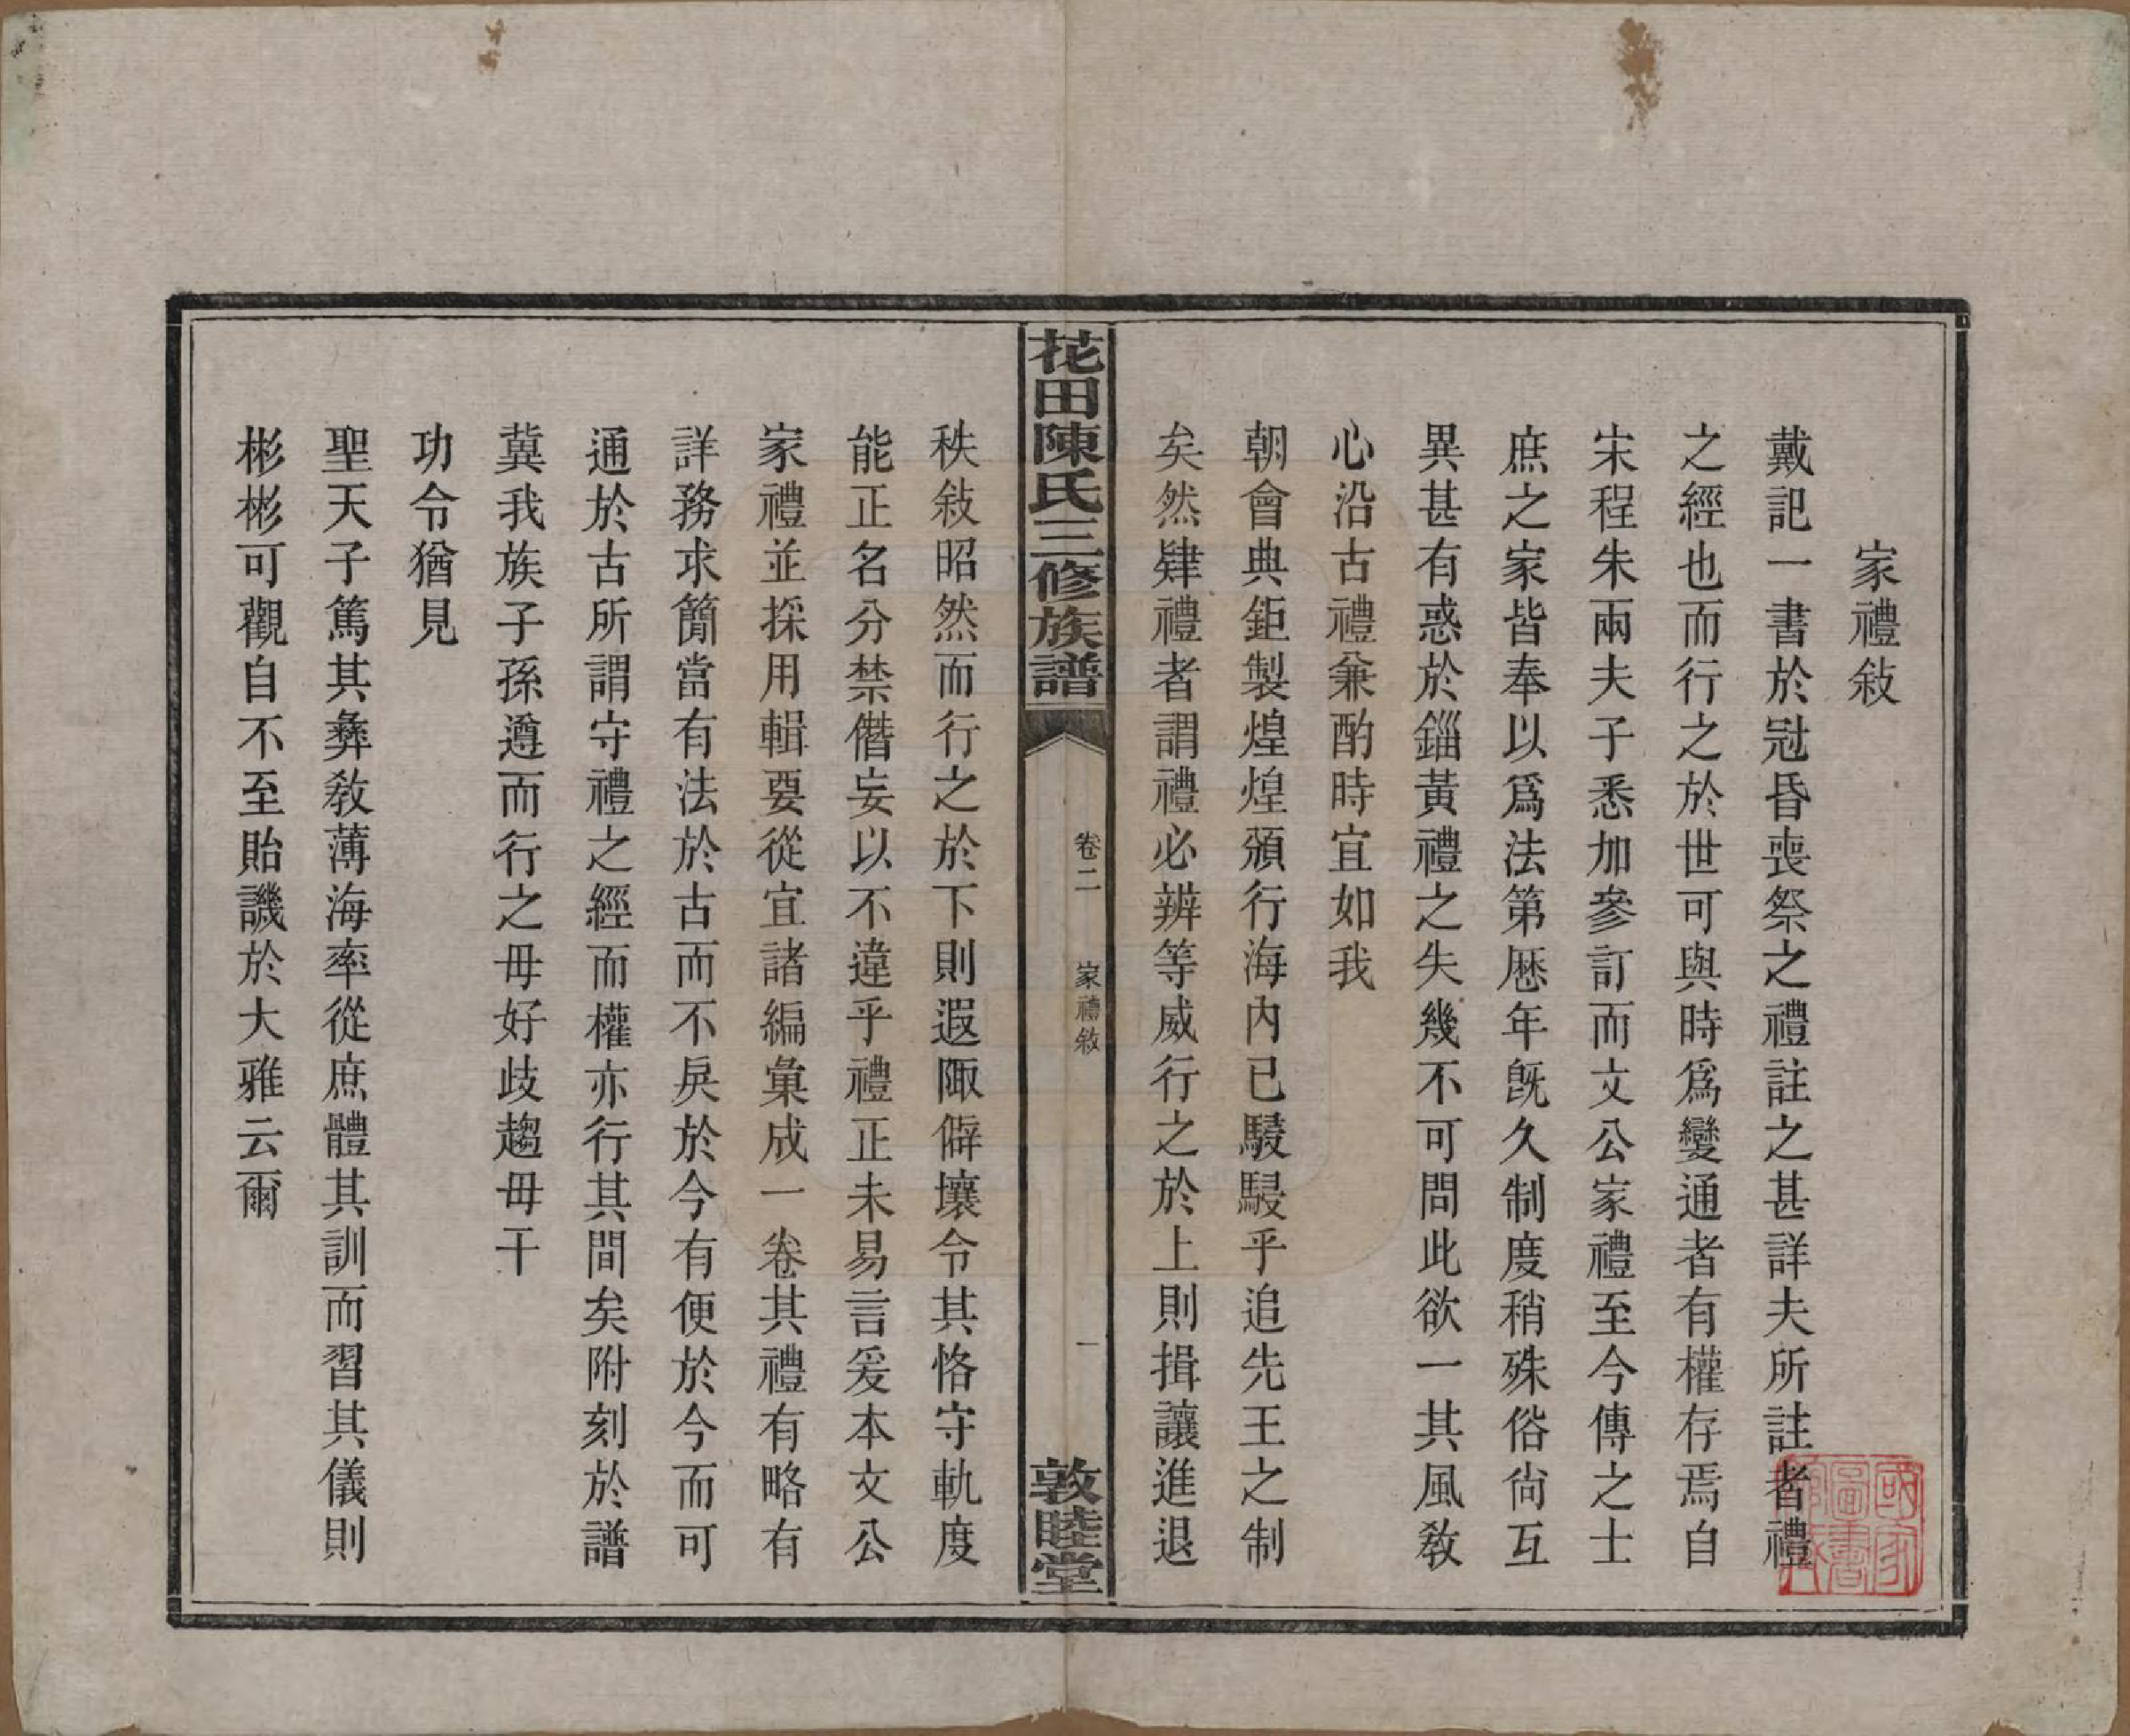 家禮敍
戴記一書於冠昏喪祭之禮註之甚詳夫所註者禮
之經也而行之於世可與時爲變通者有權存焉自
宋程朱兩夫子悉加參訂而文公家禮至今傳之士
庶之家皆奉以爲法第歷年旣久制度稍殊俗尙互
異甚有惑於錙黃禮之失幾不可問此欲一其風敎
心沿古禮兼酌時宜如我
朝會典鉅製煌煌頒行海內已駸駸乎追先王之制
矣然肄禮者謂禮必辨等威行之於上則揖讓進退
花田陳氏三修族譜
卷二
家禮敘
一
敦睦堂
秩敍昭然而行之於下則遐陬僻壤令其恪守軌度
能正名分禁僭妄以不違乎禮正未易言爰本文公
家禮並採用輯要從宜諸編彙成一卷其禮有略有
詳務求簡當有法於古而不戾於今有便於今而可
通於古所謂守禮之經而權亦行其間矣附刻於譜
冀我族子孫遵而行之毋好歧趨毋干
功令猶見
聖天子篤其彝敎薄海率從庶體其訓而習其儀則
彬彬可觀自不至貽譏於大雅云爾
國家
圖書